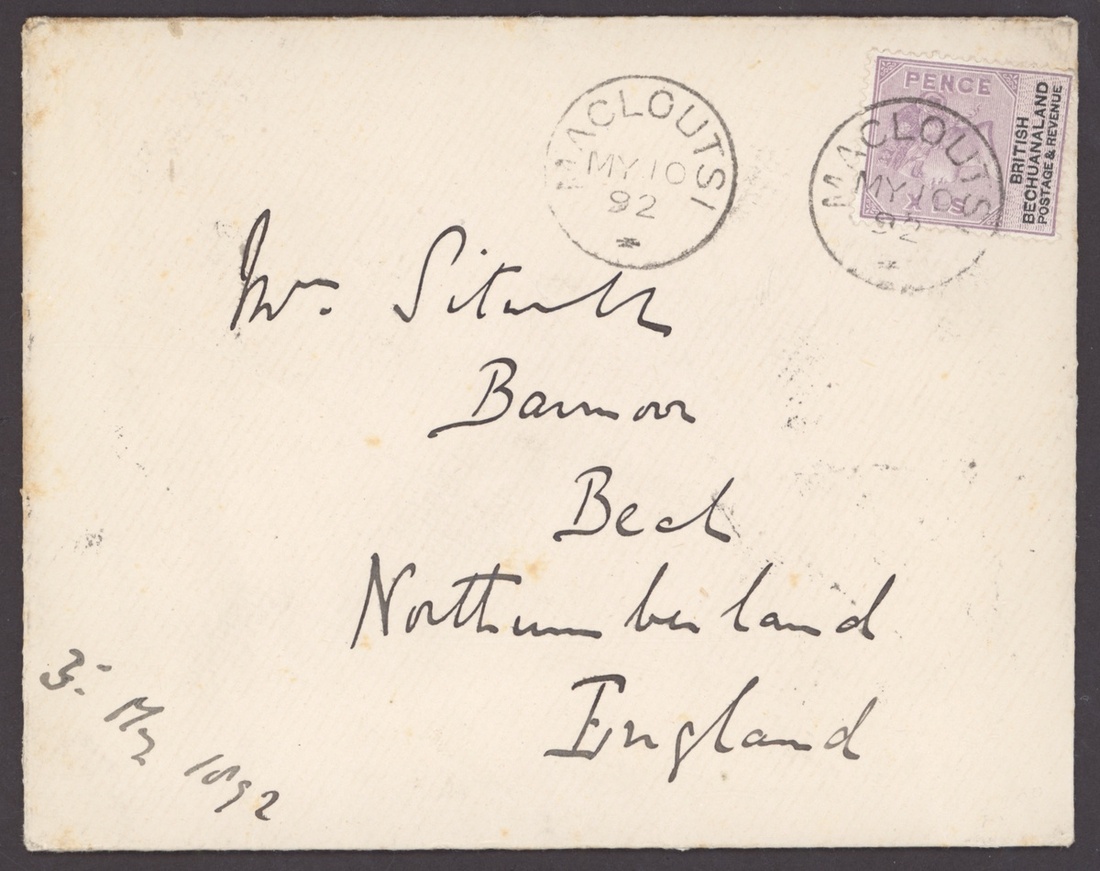 PENCE
BRITISH
BECHUANALAND
POSTAGE & REVENUE
MACLOUTSI
MY 10
92
MACLOUTSI
MY 10
92
Mrs. Sitwell
Barmoor
Beal
Northumberland
England
3- May 1892